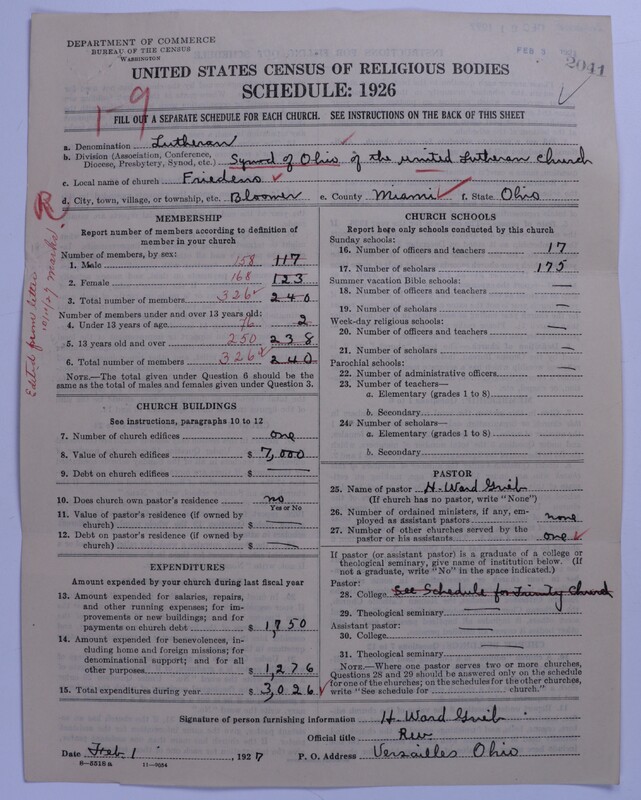 DEPARTMENT OF COMMERCE
BUREAU OF THE CENSUS
WASHINGTON
FEB 3
2041
UNITED STATES CENSUS OF RELIGIOUS BODIES
SCHEDULE: 1926
1-9
FILL OUT A SEPARATE SCHEDULE FOR EACH CHURCH. SEE INSTRUCTIONS ON THE BACK OF THIS SHEET
a. Denomination Lutheran
b. Division (Association, Conference, Diocese, Presbytery, Synod, etc.) Synod of Ohio of the united Lutheran Church
c. Local name of church Friedens
d. City, town, village, or township, etc. Bloomer e. County Miami f. State Ohio
Edited from letter
10/10/27 marked
MEMBERSHIP
Report number of members according to definition of
member in your church
Number of members, by sex:
1. Male 158 117
2. Female 168 123
3. Total number of members 326 240
Number of members under and over 13 years old:
4. Under 13 years of age 76 2
5. 13 years old and over 250 238
6. Total number of members 326 240
NOTE.—The total given under Question 6 should be the
same as the total of males and females given under Question 3.
CHURCH BUILDINGS
See instructions, paragraphs 10 to 12
7. Number of church edifices one
8. Value of church edifices $ 7,000
9. Debt on church edifices $
10. Does church own pastor's residence no
Yes or No
11. Value of pastor's residence (if owned by
church) $
12. Debt on pastor's residence (if owned by
church) $
EXPENDITURES
Amount expended by your church during last fiscal year
13. Amount expended for salaries, repairs,
and other running expenses; for im-
provements or new buildings; and for
payments on church debt $ 1,750
14. Amount expended for benevolences, in-
cluding home and foreign missions; for
denominational support; and for all
other purposes $ 1,276
15. Total expenditures during year $ 3,026
CHURCH SCHOOLS
Report here only schools conducted by this church
Sunday schools:
16. Number of officers and teachers 17
17. Number of scholars 175
Summer vacation Bible schools:
18. Number of officers and teachers —
19. Number of scholars —
Week-day religious schools:
20. Number of officers and teachers —
21. Number of scholars —
Parochial schools:
22. Number of administrative officers —
23. Number of teachers—
a. Elementary (grades 1 to 8)
b. Secondary
24. Number of scholars—
a. Elementary (grades 1 to 8)
b. Secondary
PASTOR
25. Name of pastor H. Ward Grieb
(If church has no pastor, write "None")
26. Number of ordained ministers, if any, em-
ployed as assistant pastors none
27. Number of other churches served by the
pastor or his assistants one
If pastor (or assistant pastor) is a graduate of a college or
theological seminary, give name of institution below. (If
not a graduate, write "No" in the space indicated.)
Pastor:
28. College See Schedule for Trinity Church
29. Theological seminary
Assistant pastor:
30. College
31. Theological seminary
NOTE.—Where one pastor serves two or more churches,
Questions 28 and 29 should be answered only on the schedule
for one of the churches; on the schedules for the other churches,
write "See schedule for church."
Signature of person furnishing information H. Ward Grieb
Official title Rev.
Date Feb. 1, 1927 P. O. Address Versailles Ohio
8-5518a 11-9084